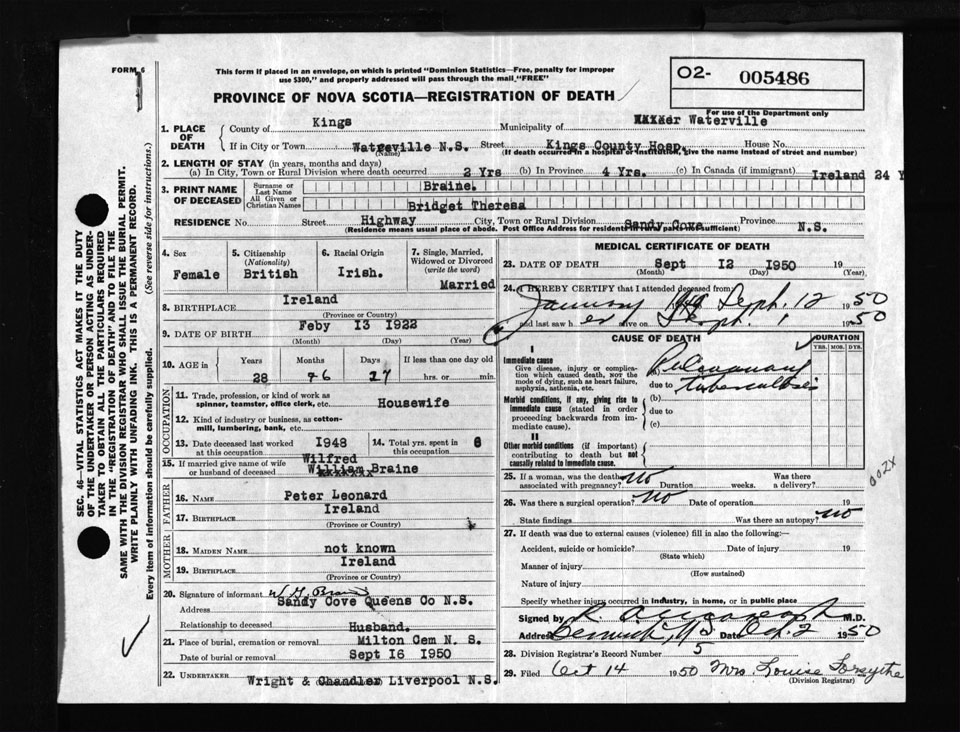 FORM 6
This form if placed in an envelope, on which is printed "Dominion Statistics—Free, penalty for improper
use $300," and properly addressed will pass through the mail "FREE"
O2- 005486
For use of the Department only
PROVINCE OF NOVA SCOTIA—REGISTRATION OF DEATH
1. PLACE OF DEATH
County of Kings Municipality of Waterville
If in City or Town Watreville N.S. Street Kings County Hosp. House No.
(Name) (If death occurred in a hospital or institution, give the name instead of street and number)
2. LENGTH OF STAY (in years, months and days)
(a) In City, Town or Rural Division where death occurred 2 Yrs (b) In Province 4 Yrs. (c) In Canada (if immigrant) Ireland 24 Y
3. PRINT NAME OF DECEASED
Surname or Last Name Braine.
All Given or Christian Names Bridget Theresa
RESIDENCE No. Street Highway City, Town or Rural Division Sandy Cove Province N.S.
(Residence means usual place of abode. Post Office Address for residents in rural parts insufficient)
4. Sex Female
5. Citizenship (Nationality) British
6. Racial Origin Irish.
7. Single, Married, Widowed or Divorced (write the word) Married
8. BIRTHPLACE Ireland
(Province or Country)
9. DATE OF BIRTH Feby I3 I922
(Month) (Day) (Year)
10. AGE in Years Months Days If less than one day old
28 6 hrs. or min.
OCCUPATION
11. Trade, profession, or kind of work as spinner, teamster, office clerk, etc. Housewife
12. Kind of industry or business, as cotton-mill, lumbering, bank, etc.
13. Date deceased last worked at this occupation I948
14. Total yrs. spent in 6
15. If married give name of wife or husband of deceased Wilfred William Braine
xxxxxxx
FATHER
16. NAME Peter Leonard
17. BIRTHPLACE Ireland
(Province or Country)
MOTHER
18. MAIDEN NAME not known
19. BIRTHPLACE Ireland
(Province or Country)
20. Signature of informant W. G. Braine
Address Sandy Cove Queens Co N.S.
Relationship to deceased Husband.
21. Place of burial, cremation or removal Milton Cem N. S.
Date of burial or removal Sept I6 I950
22. UNDERTAKER Wright & Chandler Liverpool N.S.
MEDICAL CERTIFICATE OF DEATH
23. DATE OF DEATH Sept I2 I950 19
(Month) (Day) (Year)
24. I HEREBY CERTIFY that I attended deceased from
January Sept. 12 1950
and last saw her alive on Sept. 1 1950
CAUSE OF DEATH
DURATION
YRS. MOS. DYS.
I
Immediate cause
Give disease, injury or complication which caused death, NOT the mode of dying, such as heart failure, asphyxia, asthenia, etc.
(a) Pulmonary
due to tuberculosis
Morbid conditions, if any, giving rise to immediate cause (stated in order proceeding backwards from immediate cause).
(b)
due to
(c)
II
Other morbid conditions (if important) contributing to death but not causally related to immediate cause.
002X
25. If a woman, was the death associated with pregnancy? No Duration weeks. Was there a delivery?
26. Was there a surgical operation? No Date of operation 19
State findings Was there an autopsy? No
27. If death was due to external causes (violence) fill in also the following:—
Accident, suicide or homicide? Date of injury 19
(State which)
Manner of injury
(How sustained)
Nature of injury
Specify whether injury occurred in Industry, in home, or in public place
Signed by M.D.
Address Berwick, NS Date Oct. 2 1950
28. Division Registrar's Record Number 5
29. Filed Oct 14 1950 Mrs. Louise Forsythe
(Division Registrar)
SEC. 46—VITAL STATISTICS ACT MAKES IT THE DUTY
OF THE UNDERTAKER OR PERSON ACTING AS UNDER-
TAKER TO OBTAIN ALL THE PARTICULARS REQUIRED
IN THE "REGISTRATION OF DEATH" AND TO FILE THE
SAME WITH THE DIVISION REGISTRAR WHO SHALL ISSUE THE BURIAL PERMIT.
WRITE PLAINLY WITH UNFADING INK. THIS IS A PERMANENT RECORD.
Every item of information should be carefully supplied. (See reverse side for instructions.)